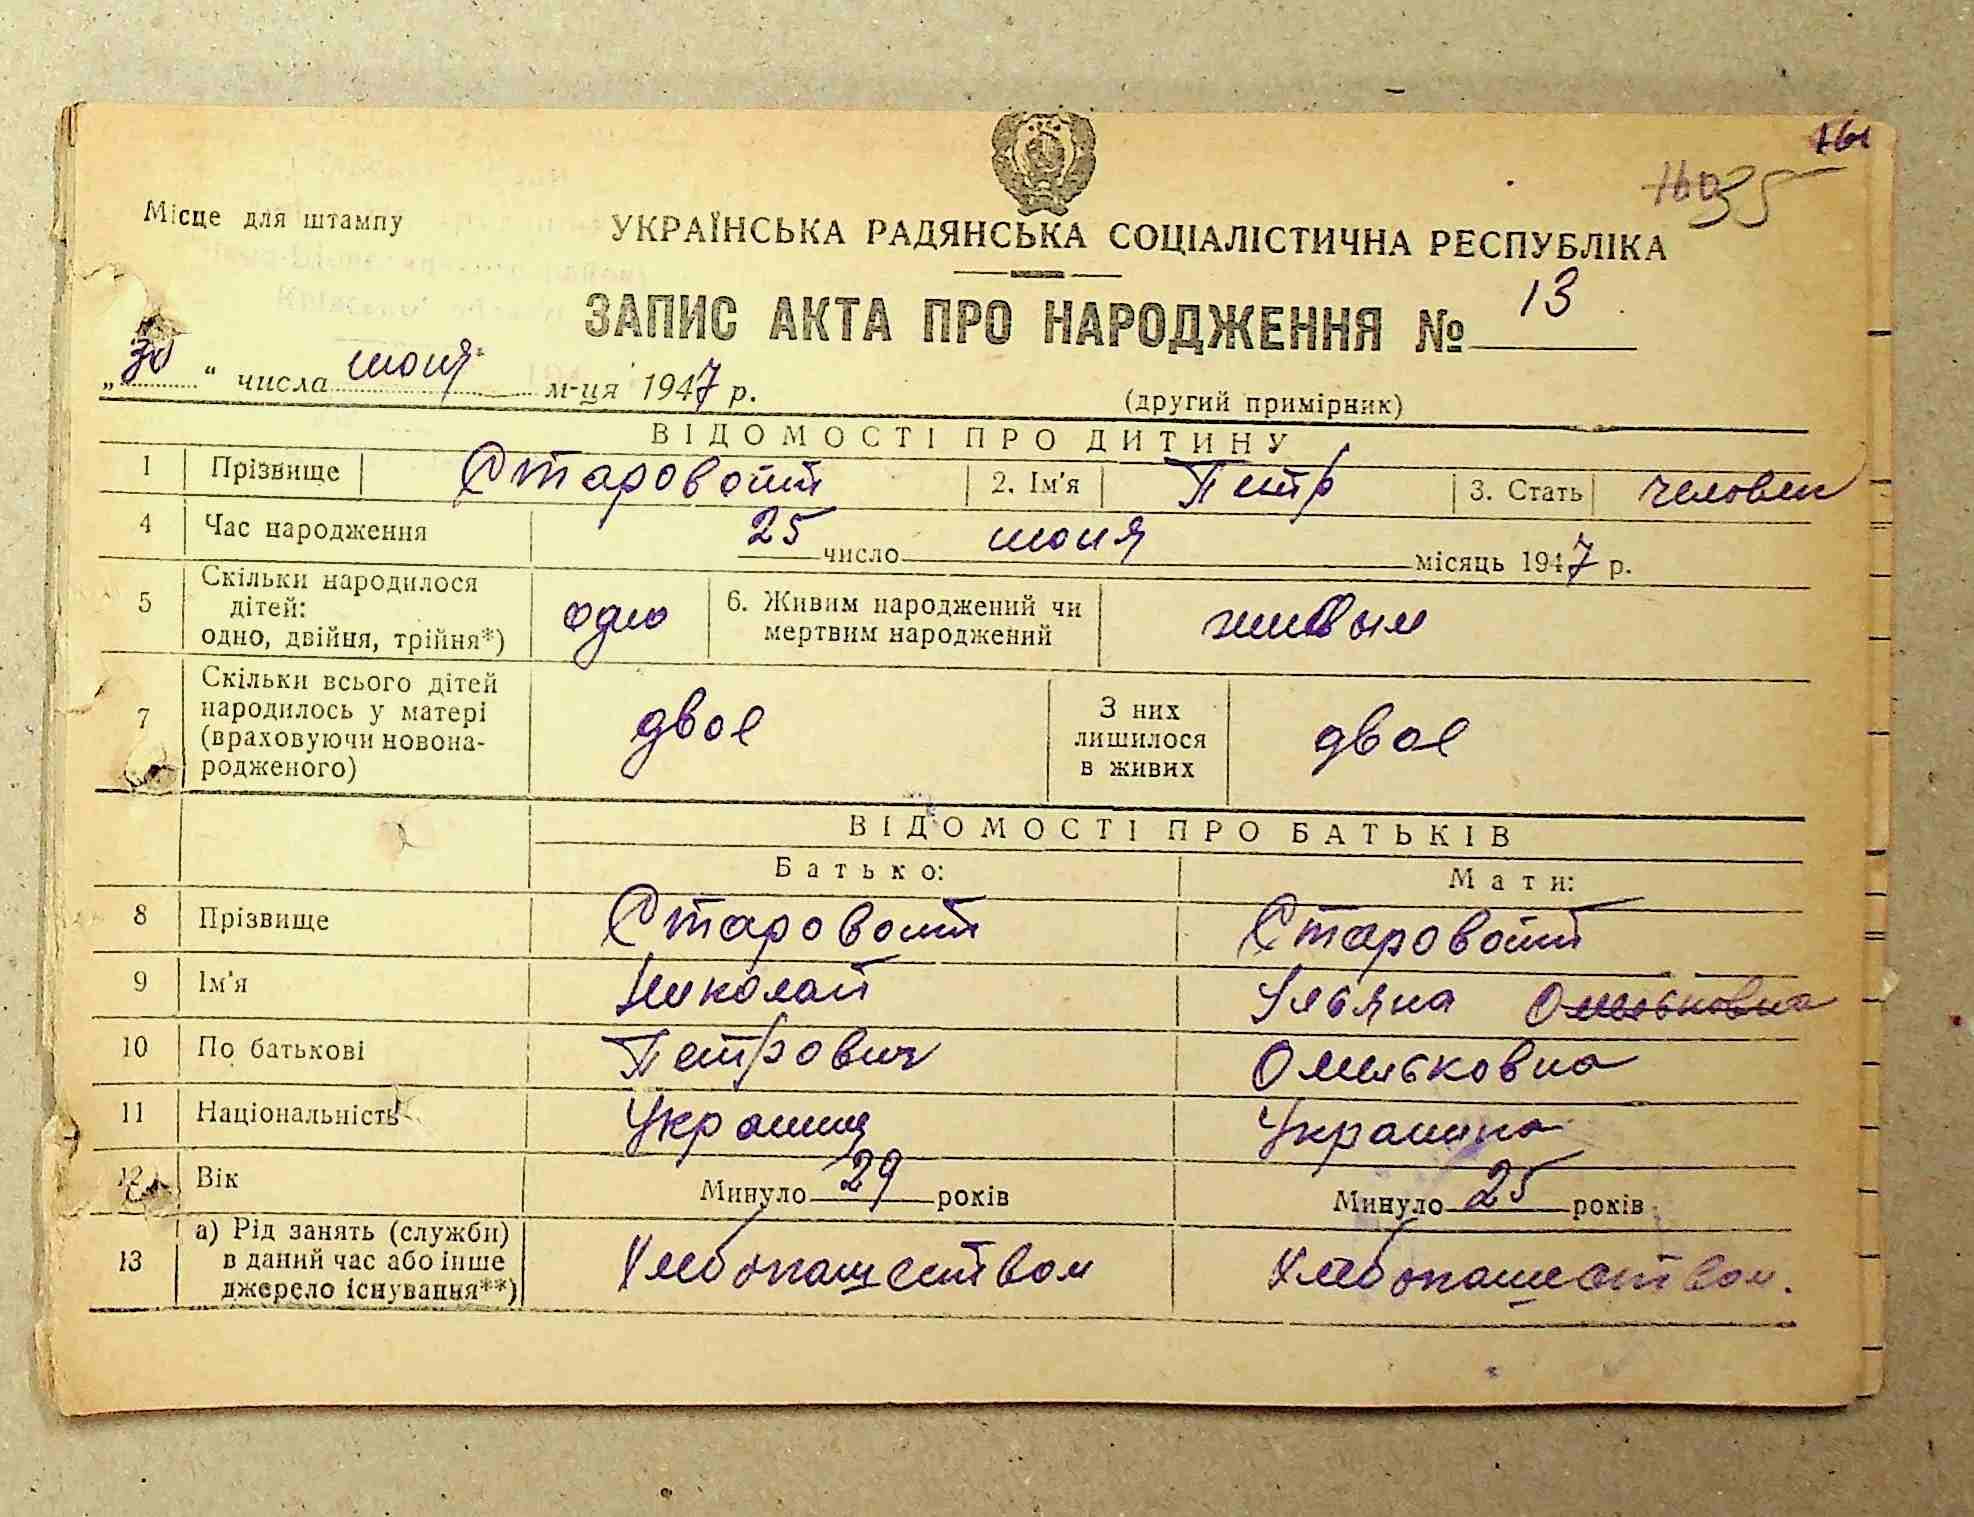 161
35
Місце для штампу
УКРАЇНСЬКА РАДЯНСЬКА СОЦІАЛІСТИЧНА РЕСПУБЛІКА
ЗАПИС АКТА ПРО НАРОДЖЕННЯ № 13
„30“ числа июня м-ця 1947 р.
(другий примірник)
ВІДОМОСТІ ПРО ДИТИНУ
1 Прізвище Старовойт 2. Ім'я Петр 3. Стать человек
4 Час народження 25 число июня місяць 1947 р.
5 Скільки народилося
дітей:
одно, двійня, трійня*) одно 6. Живим народжений чи
мертвим народжений живым
7 Скільки всього дітей
народилось у матері
(враховуючи новона-
родженого) двое З них
лишилося
в живих двое
ВІДОМОСТІ ПРО БАТЬКІВ
Батько: Мати:
8 Прізвище Старовойт Старовойт
9 Ім'я Николай Ульяна Омельковна
10 По батькові Петрович Омельковна
11 Національність Украинц Украинка
12 Вік Минуло 29 років Минуло 25 років
13 а) Рід занять (служби)
в даний час або інше
джерело існування**) Хлебопашеством Хлебопашеством.